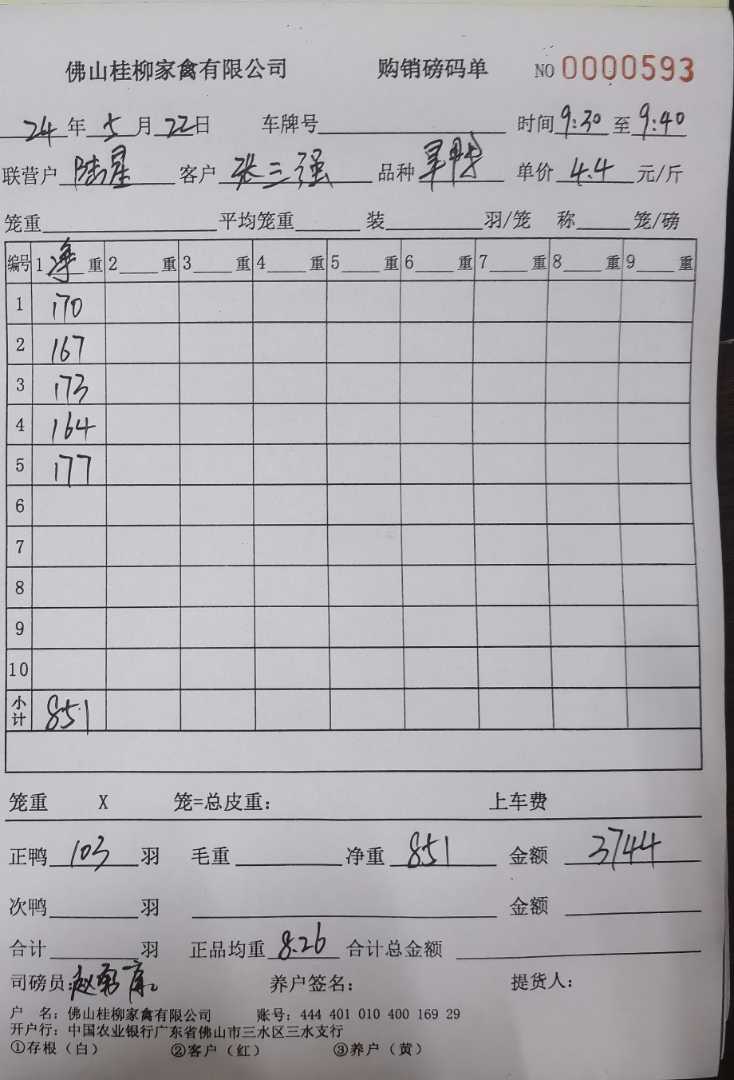 佛山桂柳家禽有限公司 购销磅码单 NO 0000593
24年5月22日 车牌号 时间9:30至9:40
联营户 陆星 客户 张三强 品种 单价 4.4 元/斤
笼重 平均笼重 装 羽/笼 称 笼/磅
编号 1净重 2 重 3 重 4 重 5 重 6 重 7 重 8 重 9 重
1 170
2 167
3 173
4 164
5 177
6
7
8
9
10
小计 851
笼重 X 笼=总皮重: 上车费
正鸭 103 羽 毛重 净重 851 金额 3744
次鸭 羽 金额
合计 羽 正品均重 8.26 合计总金额
司磅员: 赵 养户签名: 提货人:
户 名: 佛山桂柳家禽有限公司 账号: 444 401 010 400 169 29
开户行: 中国农业银行广东省佛山市三水区三水支行
①存根(白) ②客户(红) ③养户(黄)